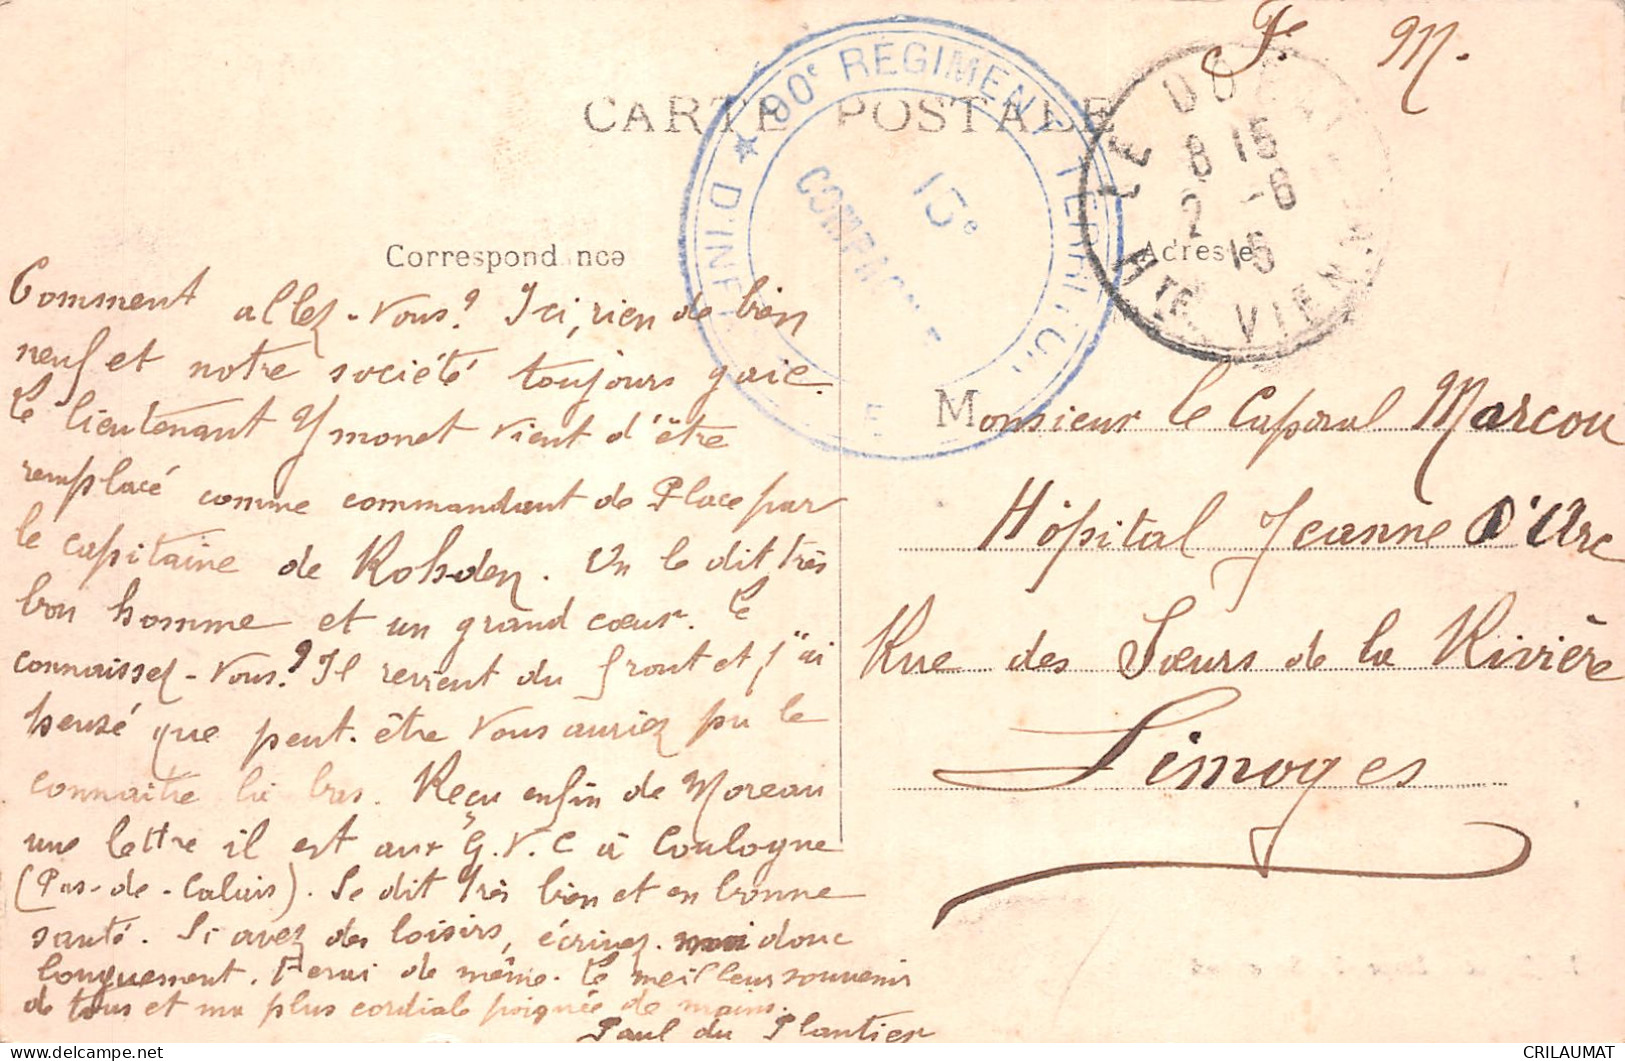 F. M.
CARTE POSTALE
90e REGIMENT TERRITORIAL D'INF
13e
COMPAGNIE
LE DORAT
8 15
2 -6
15
HTE VIENNE
Correspondance
Adresse
Comment allez-vous? Ici, rien de bien
neuf et notre société toujours gaie.
Le lieutenant Ymonet vient d'être
remplacé comme commandant de Place par
le capitaine de Rohden. On le dit très
bon homme et un grand cœur. Le
connaissez-vous? Il revient du front et j'ai
pensé que peut-être vous auriez pu le
connaître là bas. Reçu enfin de Moreau
une lettre il est aux G.V.C à Coulogne
(Pas-de-Calais). Se dit très bien et en bonne
santé. Si avez des loisirs, écrivez moi donc
longuement. Ferai de même. Le meilleur souvenir
de tous et ma plus cordiale poignée de mains.
Paul du Plantier
Monsieur le Caporal Marcou
Hôpital Jeanne d'Arc
Rue des Sœurs de la Rivière
Limoges
CRILAUMAT